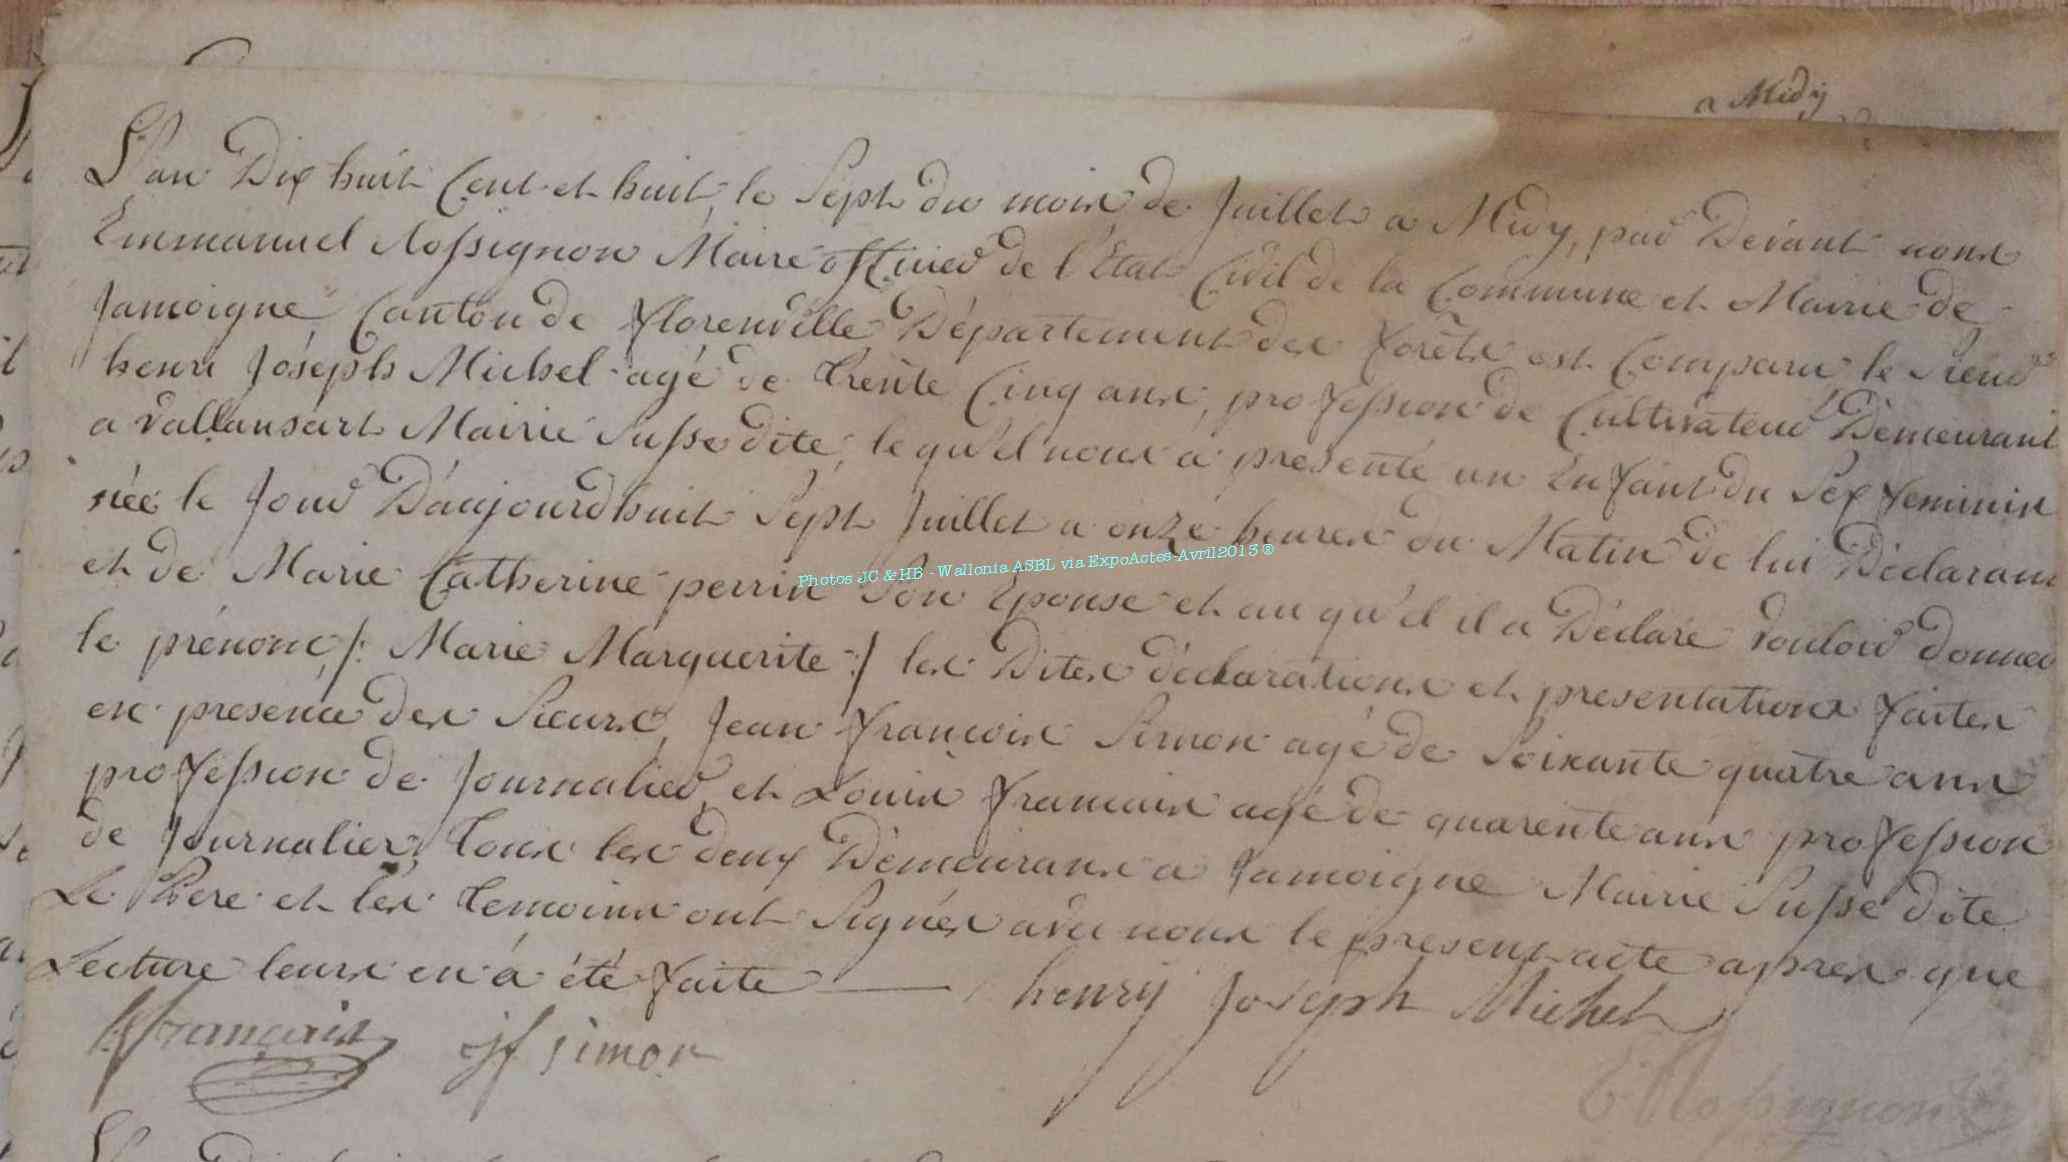 a Midÿ
L'an Dix huit Cent et huit, le Sept du mois de Juillet a Midy, par Devant nous
Emmanuel Rossignon Maire officier de l'Etat Civil de la Commune et Mairie de
Jamoigne, Canton de florenville Département des forêts est Comparu le Sieur
henri Joseph Michel agé de trente Cinq ans, profession de Cultivateur Demeurant
a vallansart Mairie Susse dite, le qu'el nous a presenté un Enfant du Sex feminin
née le Jour D'aujourdhuit Sept Juillet a onze heures du Matin de lui Déclarant
et de Marie Catherine perrin Son Epouse et au qu'el il a Déclaré vouloir donner
le prénom /: Marie Marguerite :/ les Dites déclarations et presentations faites
en presence des Sieurs, Jean françois Simon agé de Soixante quatre ans
profession de Journalier, et Louis francais agé de quarente ans profession
de Journalier, tous les deux Demeurans a Jamoigne Mairie Susse dite
Le Pere et les temoins ont Signés avec nous le present acte apres que
Lecture leurs en á été faite
henrÿ Joseph Michel
français jf simon
E Rossignon
Photos JC & HB - Wallonia ASBL via ExpoActes-Avril2013 ®